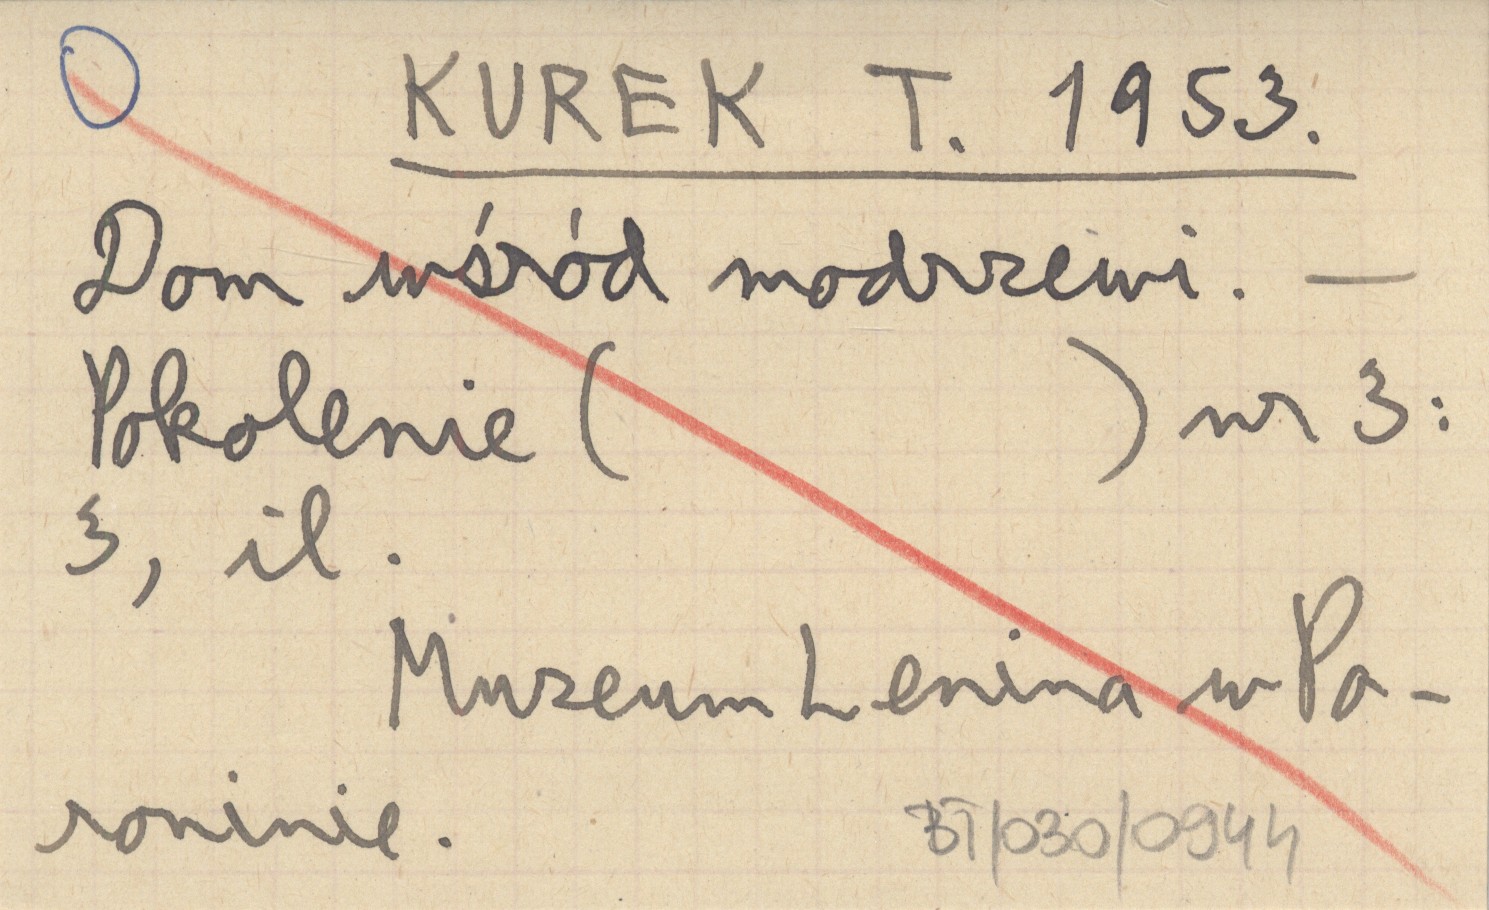 KUREK T. 1953.
Dom wśród modrzewi. —
Pokolenie ( ) nr 3:
3, il.
Muzeum Lenina w Po-
roninie.
BT/030/0944